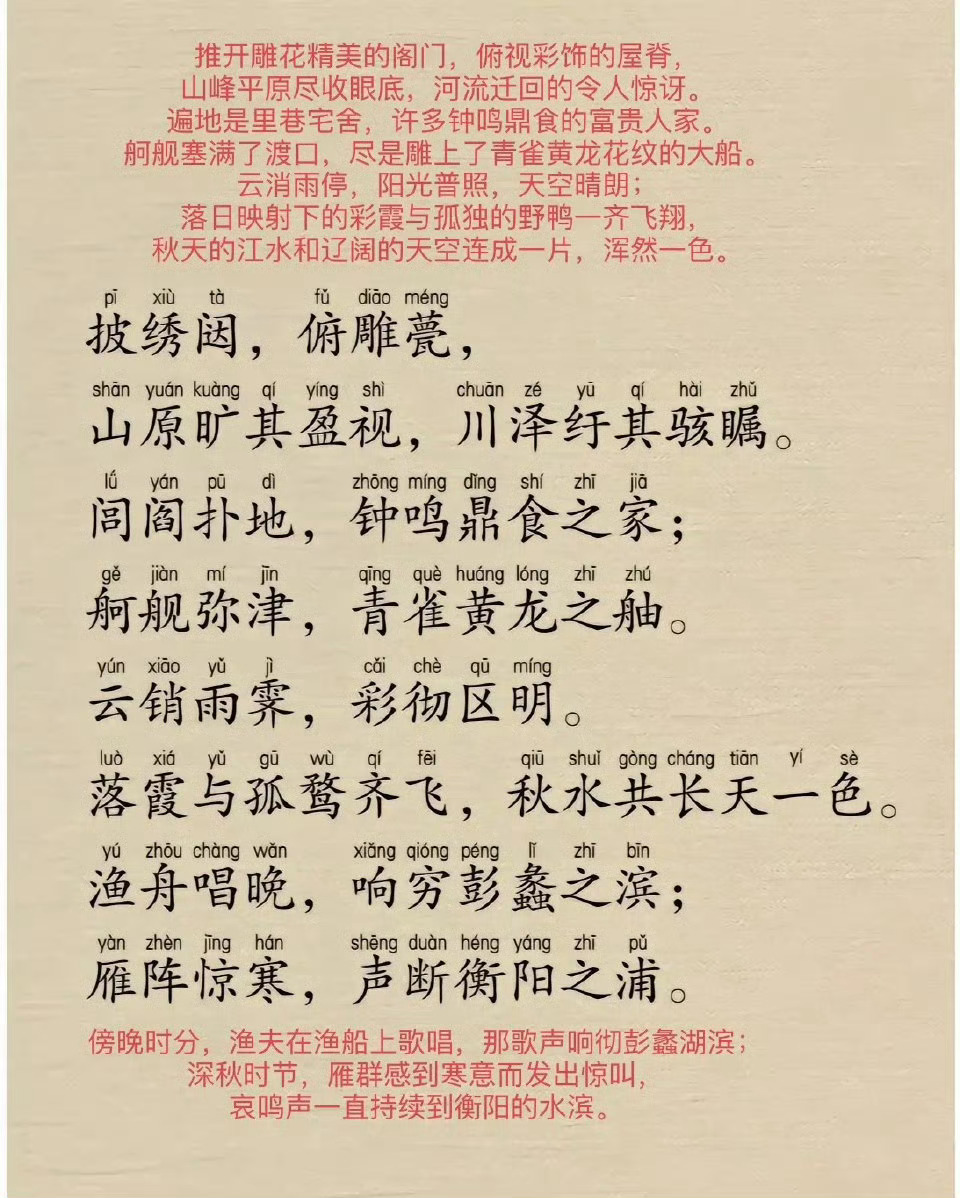 推开雕花精美的阁门，俯视彩饰的屋脊，
山峰平原尽收眼底，河流迂回的令人惊讶。
遍地是里巷宅舍，许多钟鸣鼎食的富贵人家。
舸舰塞满了渡口，尽是雕上了青雀黄龙花纹的大船。
云消雨停，阳光普照，天空晴朗；
落日映射下的彩霞与孤独的野鸭一齐飞翔，
秋天的江水和辽阔的天空连成一片，浑然一色。
pī xiù tà fǔ diāo méng
披绣闼，俯雕甍，
shān yuán kuàng qí yíng shì chuān zé yū qí hài zhǔ
山原旷其盈视，川泽纡其骇瞩。
lǘ yán pū dì zhōng míng dǐng shí zhī jiā
闾阎扑地，钟鸣鼎食之家；
gě jiàn mí jīn qīng què huáng lóng zhī zhú
舸舰弥津，青雀黄龙之舳。
yún xiāo yǔ jì cǎi chè qū míng
云销雨霁，彩彻区明。
luò xiá yǔ gū wù qí fēi qiū shuǐ gòng cháng tiān yí sè
落霞与孤鹜齐飞，秋水共长天一色。
yú zhōu chàng wǎn xiǎng qióng péng lǐ zhī bīn
渔舟唱晚，响穷彭蠡之滨；
yàn zhèn jīng hán shēng duàn héng yáng zhī pǔ
雁阵惊寒，声断衡阳之浦。
傍晚时分，渔夫在渔船上歌唱，那歌声响彻彭蠡湖滨；
深秋时节，雁群感到寒意而发出惊叫，
哀鸣声一直持续到衡阳的水滨。